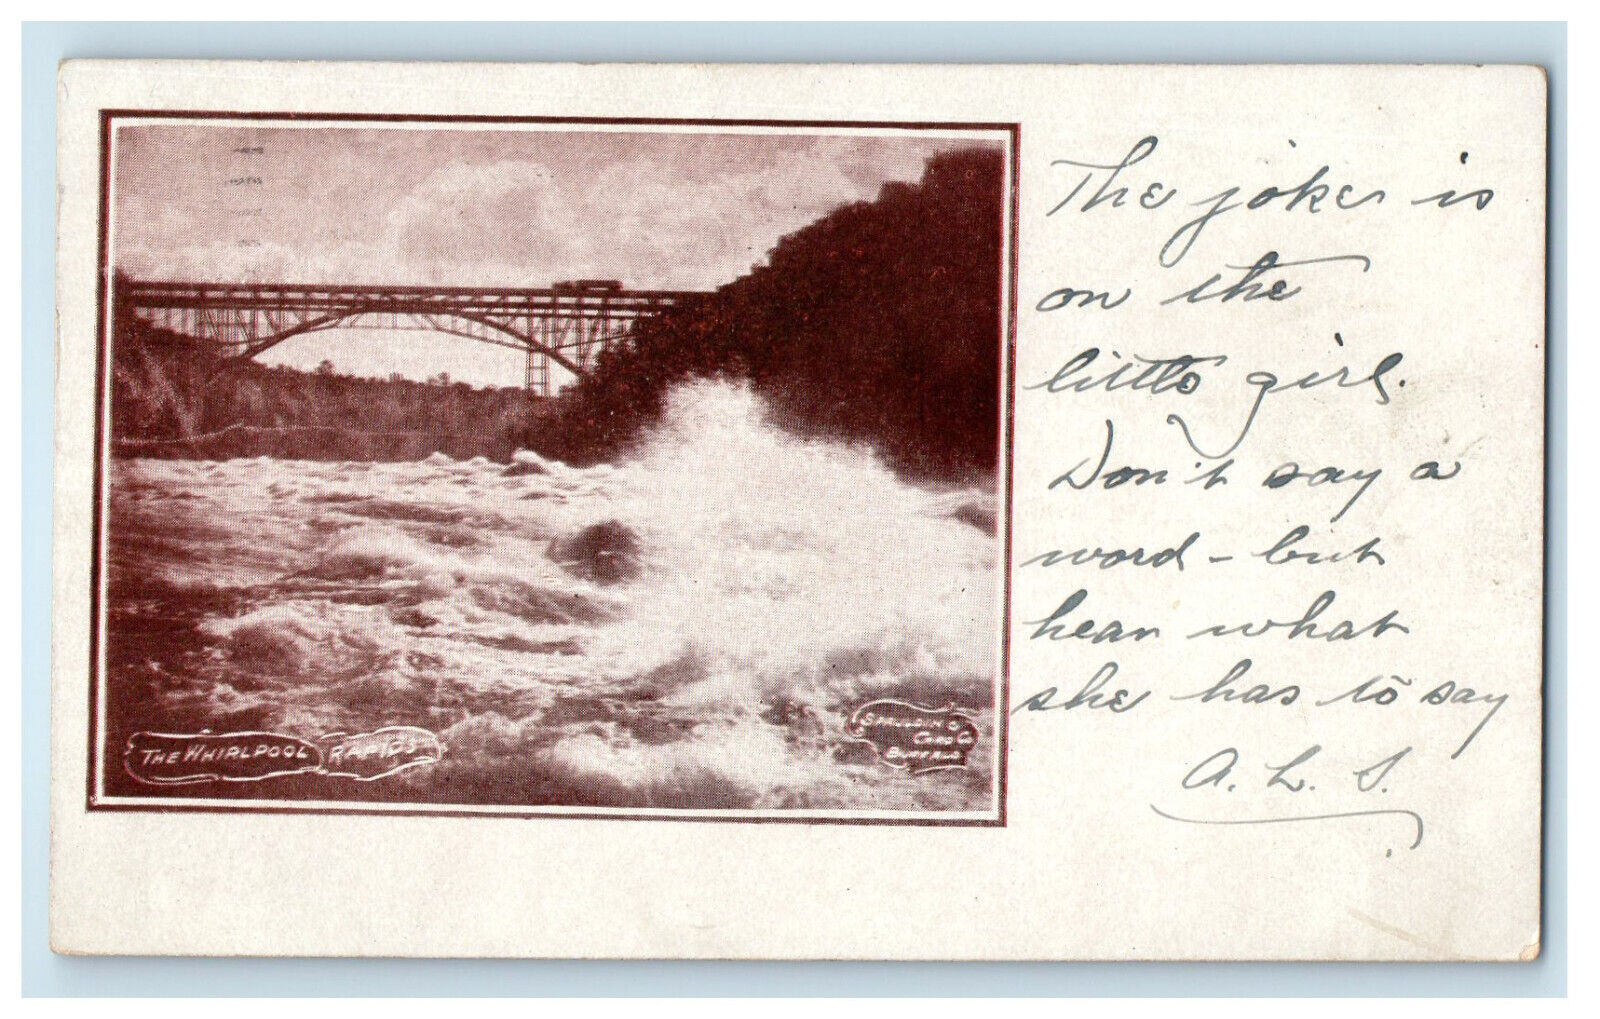 The joke is
on the
little girl.
Don't say a
word - but
hear what
she has to say
A. L. S.
THE WHIRLPOOL RAPIDS
SPAULDING
CARD CO